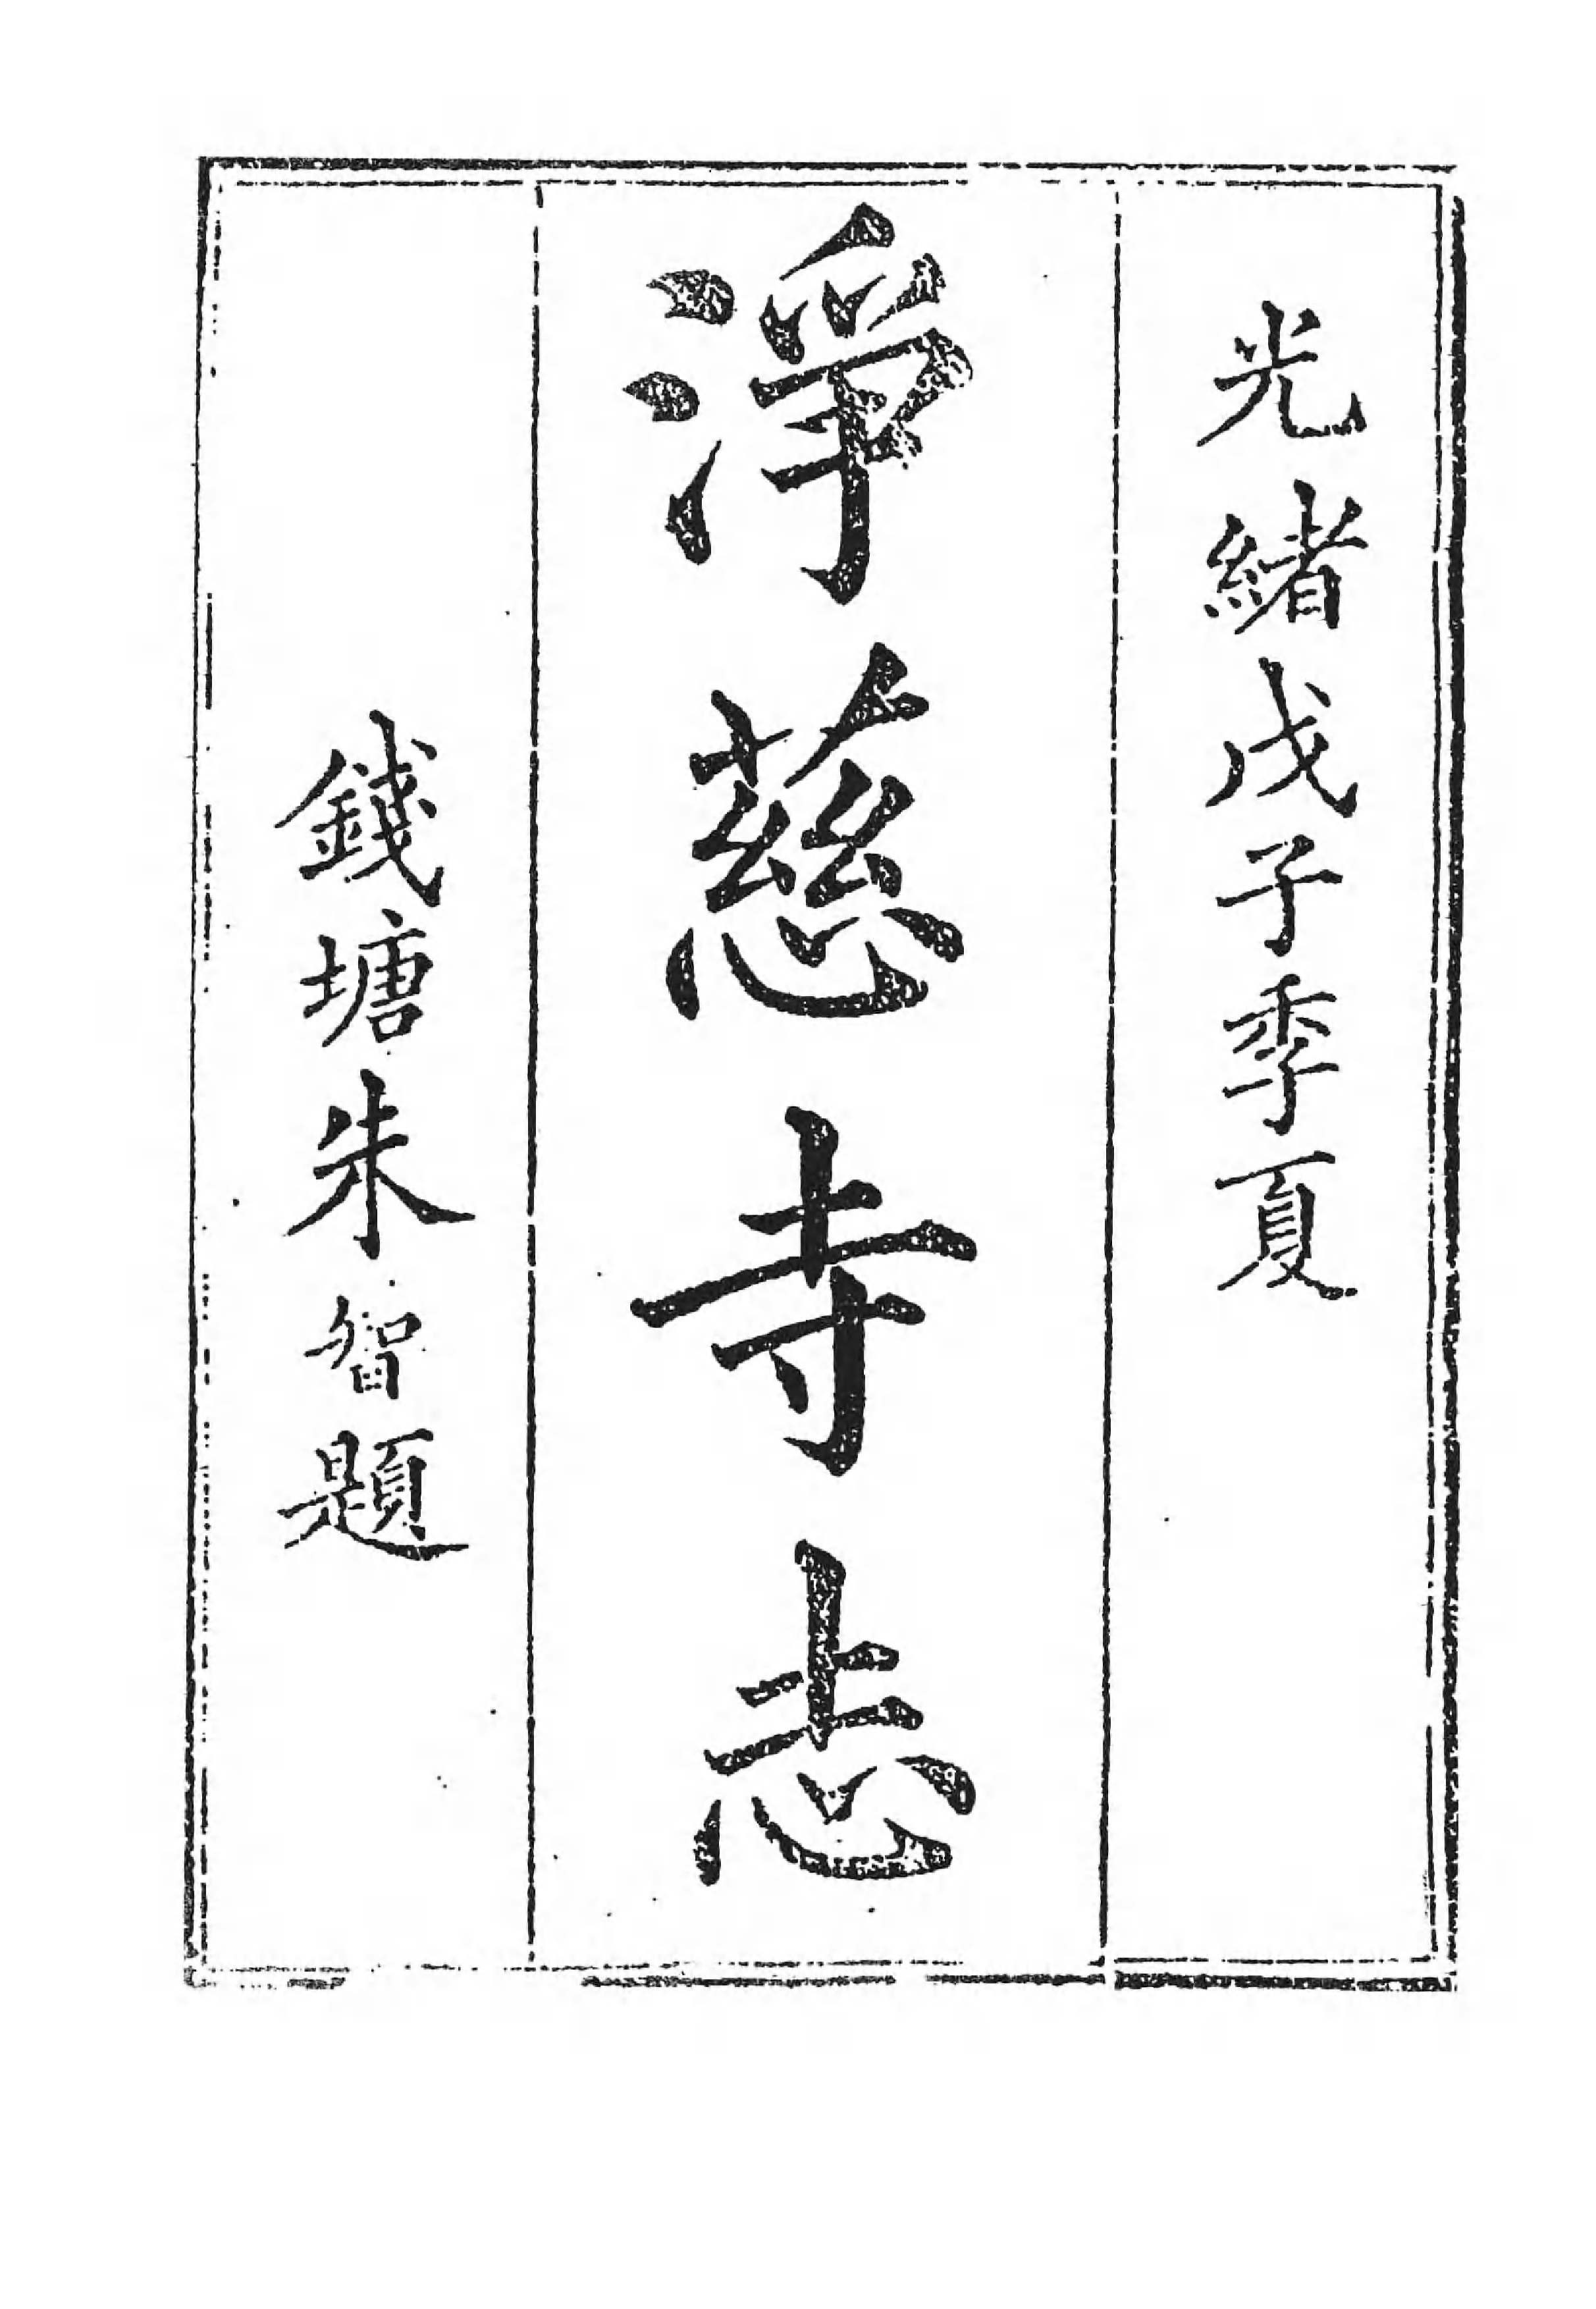 光緒戊子季夏
淨慈寺志
錢塘朱智題